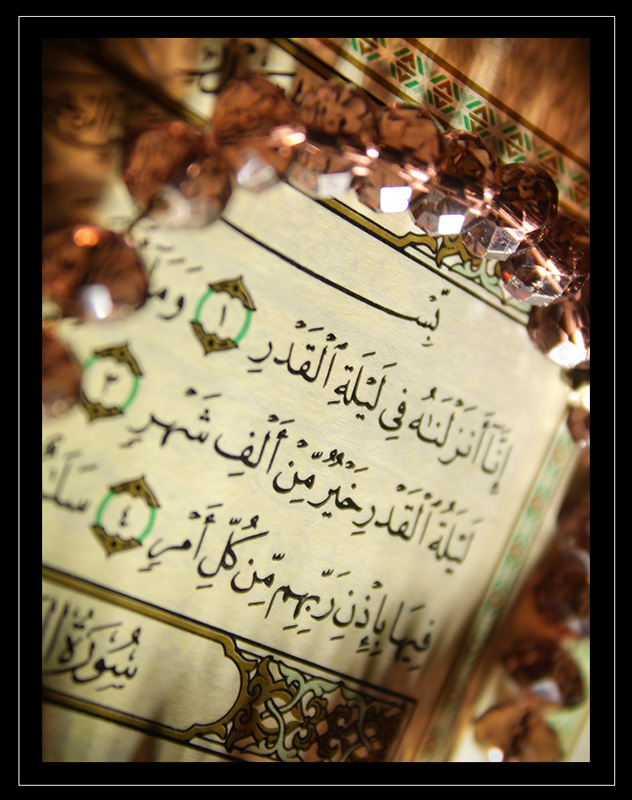 بِّسْـ
إِنَّآ أَنزَلْنَٰهُ فِى لَيْلَةِ ٱلْقَدْرِ ١ وَمَآ
لَيْلَةُ ٱلْقَدْرِ خَيْرٌ مِّنْ أَلْفِ شَهْرٍ ٣
فِيهَا بِإِذْنِ رَبِّهِم مِّن كُلِّ أَمْرٍ ٤
سُورَةُ